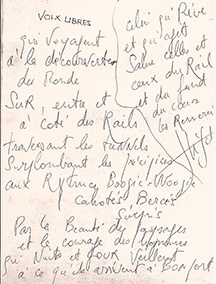 VOIX LIBRES
qui Voyagent
à la découverte
du Monde
SUR, entre et
à côté des Rails
traversant les tunnels
Surplombant les précipices
aux Rythmes Boogie-Woogie
Cahotés, Bercés
Surpris
Par la Beauté des Paysages
et le courage des Hommes
qui Nuits et Jours Veillent
à ce qu'ils arrivent à Bon Port
celui qui Rêve
et qui agit
Salue celles et
ceux du Rail
et du fond
du cœur
les Remercie